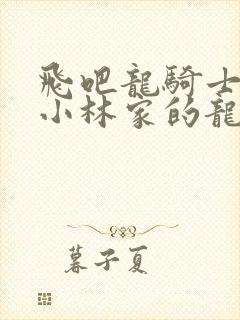 飛吧龍騎士
小林家的龍
暮子夏